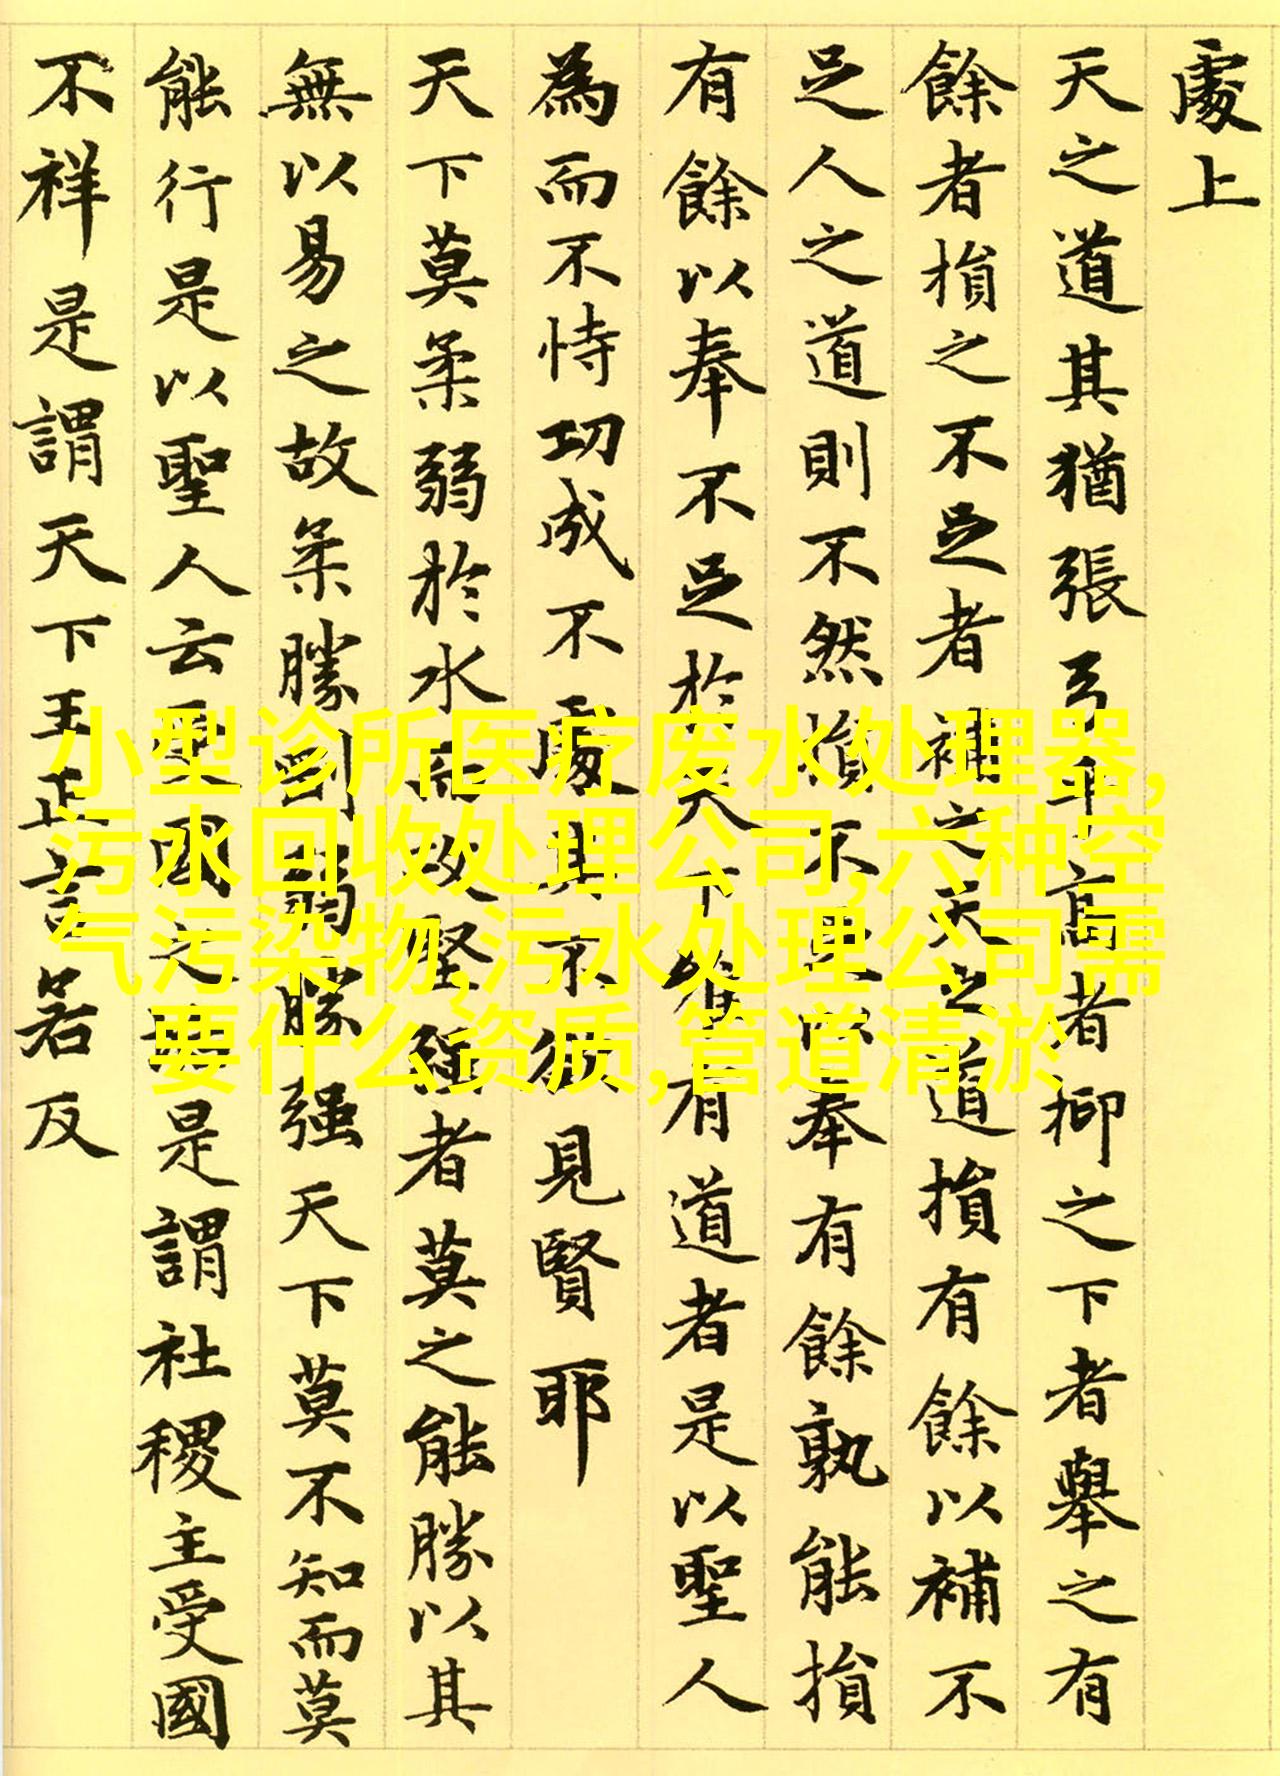 處上
天之道其猶張弓乎高者抑之下者舉之有
餘者損之不足者補之天之道損有餘以補不
足人之道則不然損不足以奉有餘孰能損
有餘以奉不足於天下唯有道者是以聖人
為而不恃功成不處其不欲見賢耶
天下莫柔弱於水而攻堅强者莫之能勝以其
無以易之故柔勝剛弱勝强天下莫不知而莫
能行是以聖人云受國之垢是謂社稷主受國
不祥是謂天下王正言若反
小型诊所医疗废水处理器,
污水回收处理公司,六种空
气污染物,污水处理公司需
要什么资质,管道清淤